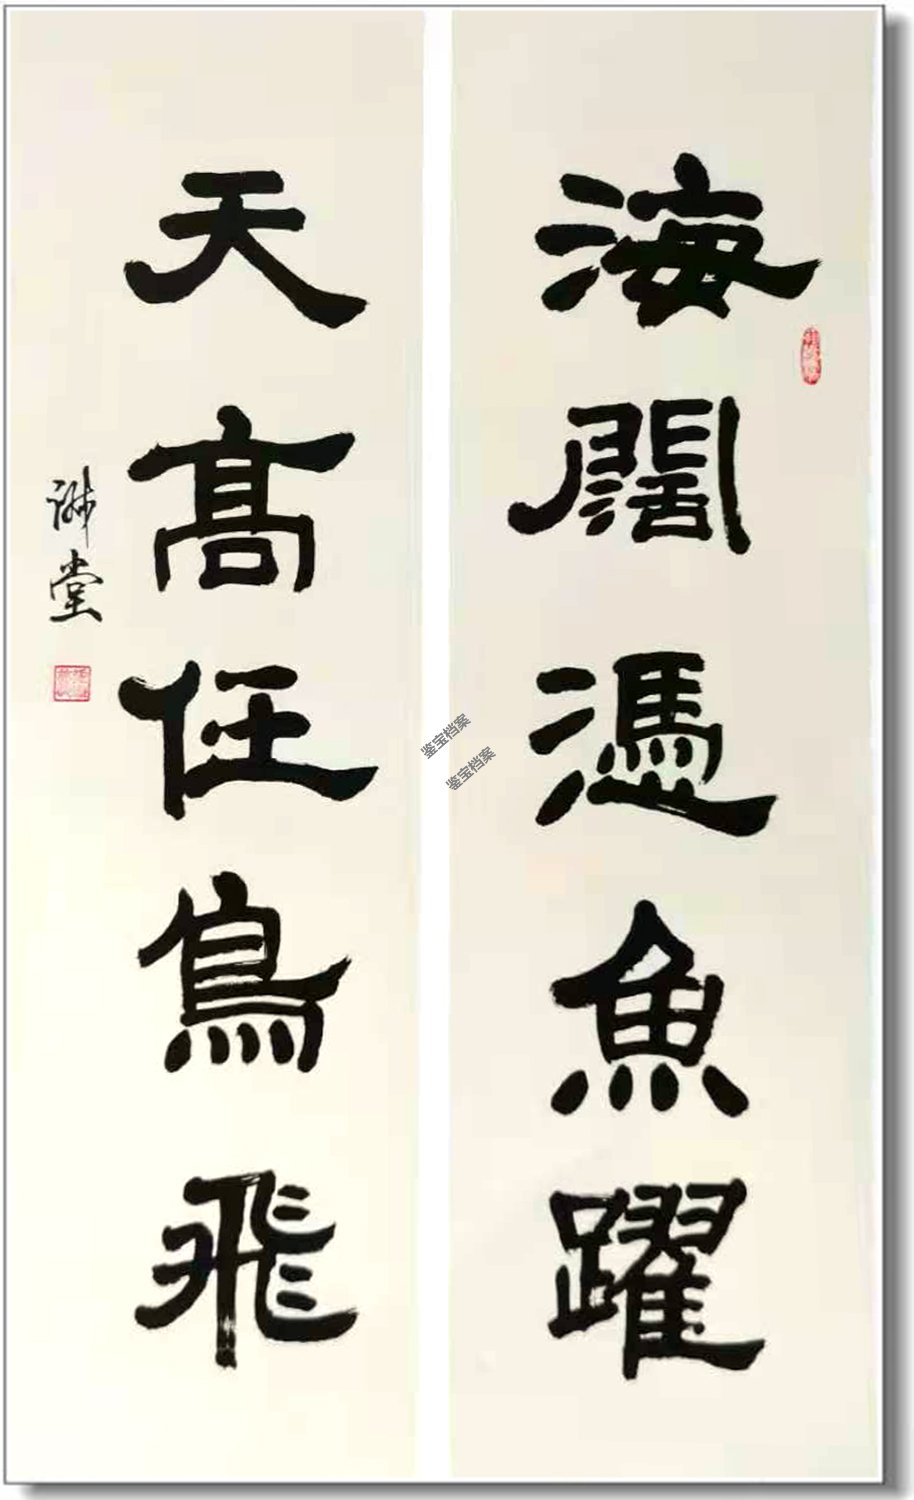 海闊憑魚躍
天高任鳥飛
堂
鉴宝档案
鉴宝档案